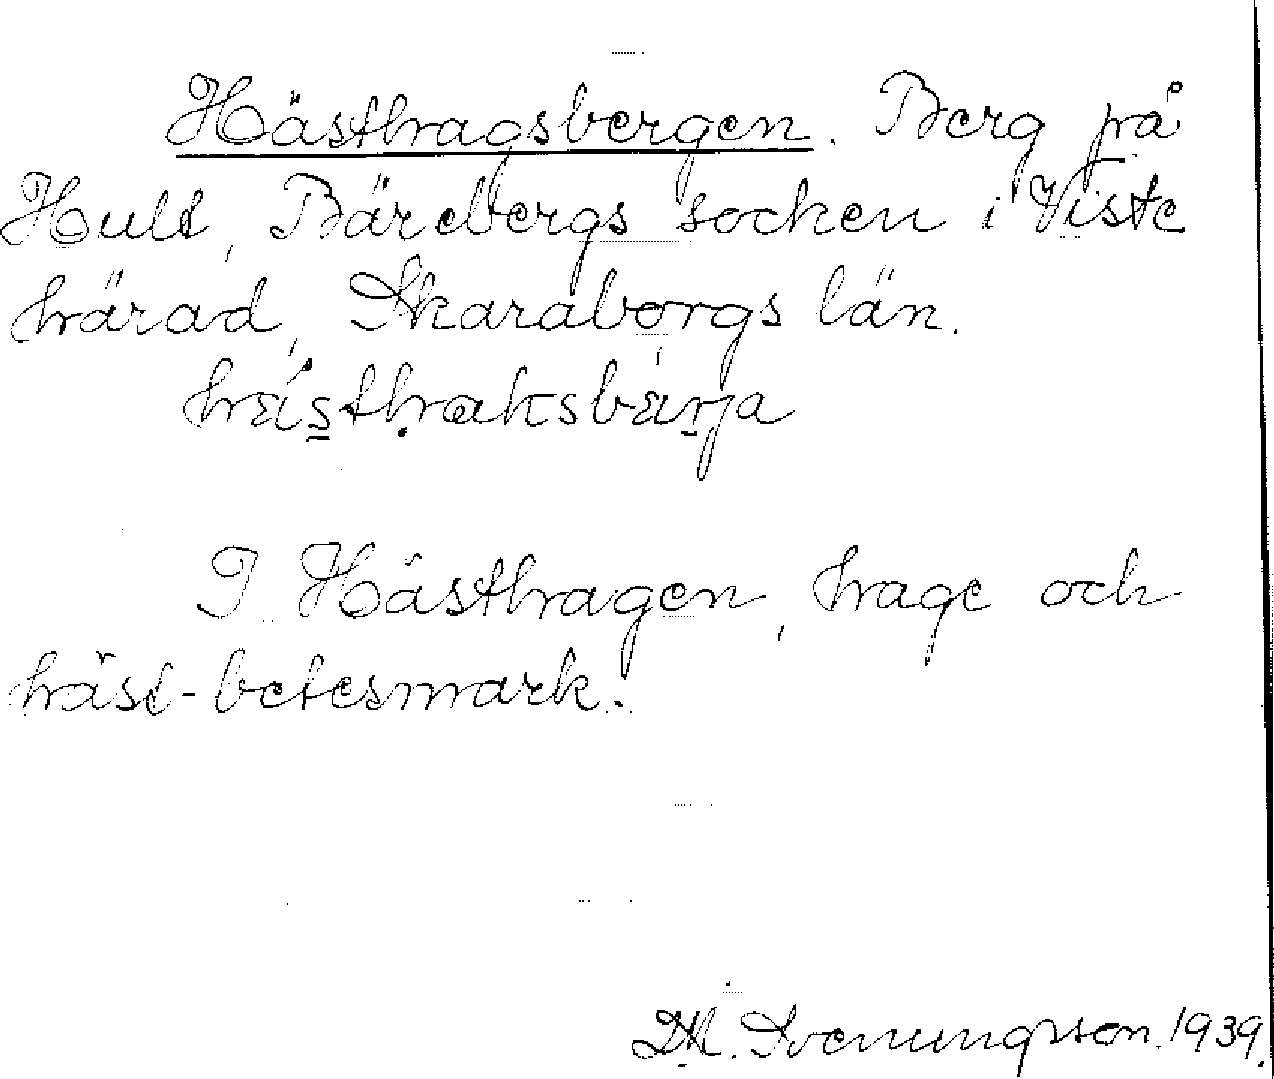 Hästhagsbergen. Berg på
Hult, Bärebergs socken i Viste
härad, Skaraborgs län.
I Hästhagen, hage och
häst-betesmark.
M. Svenungsson. 1939.